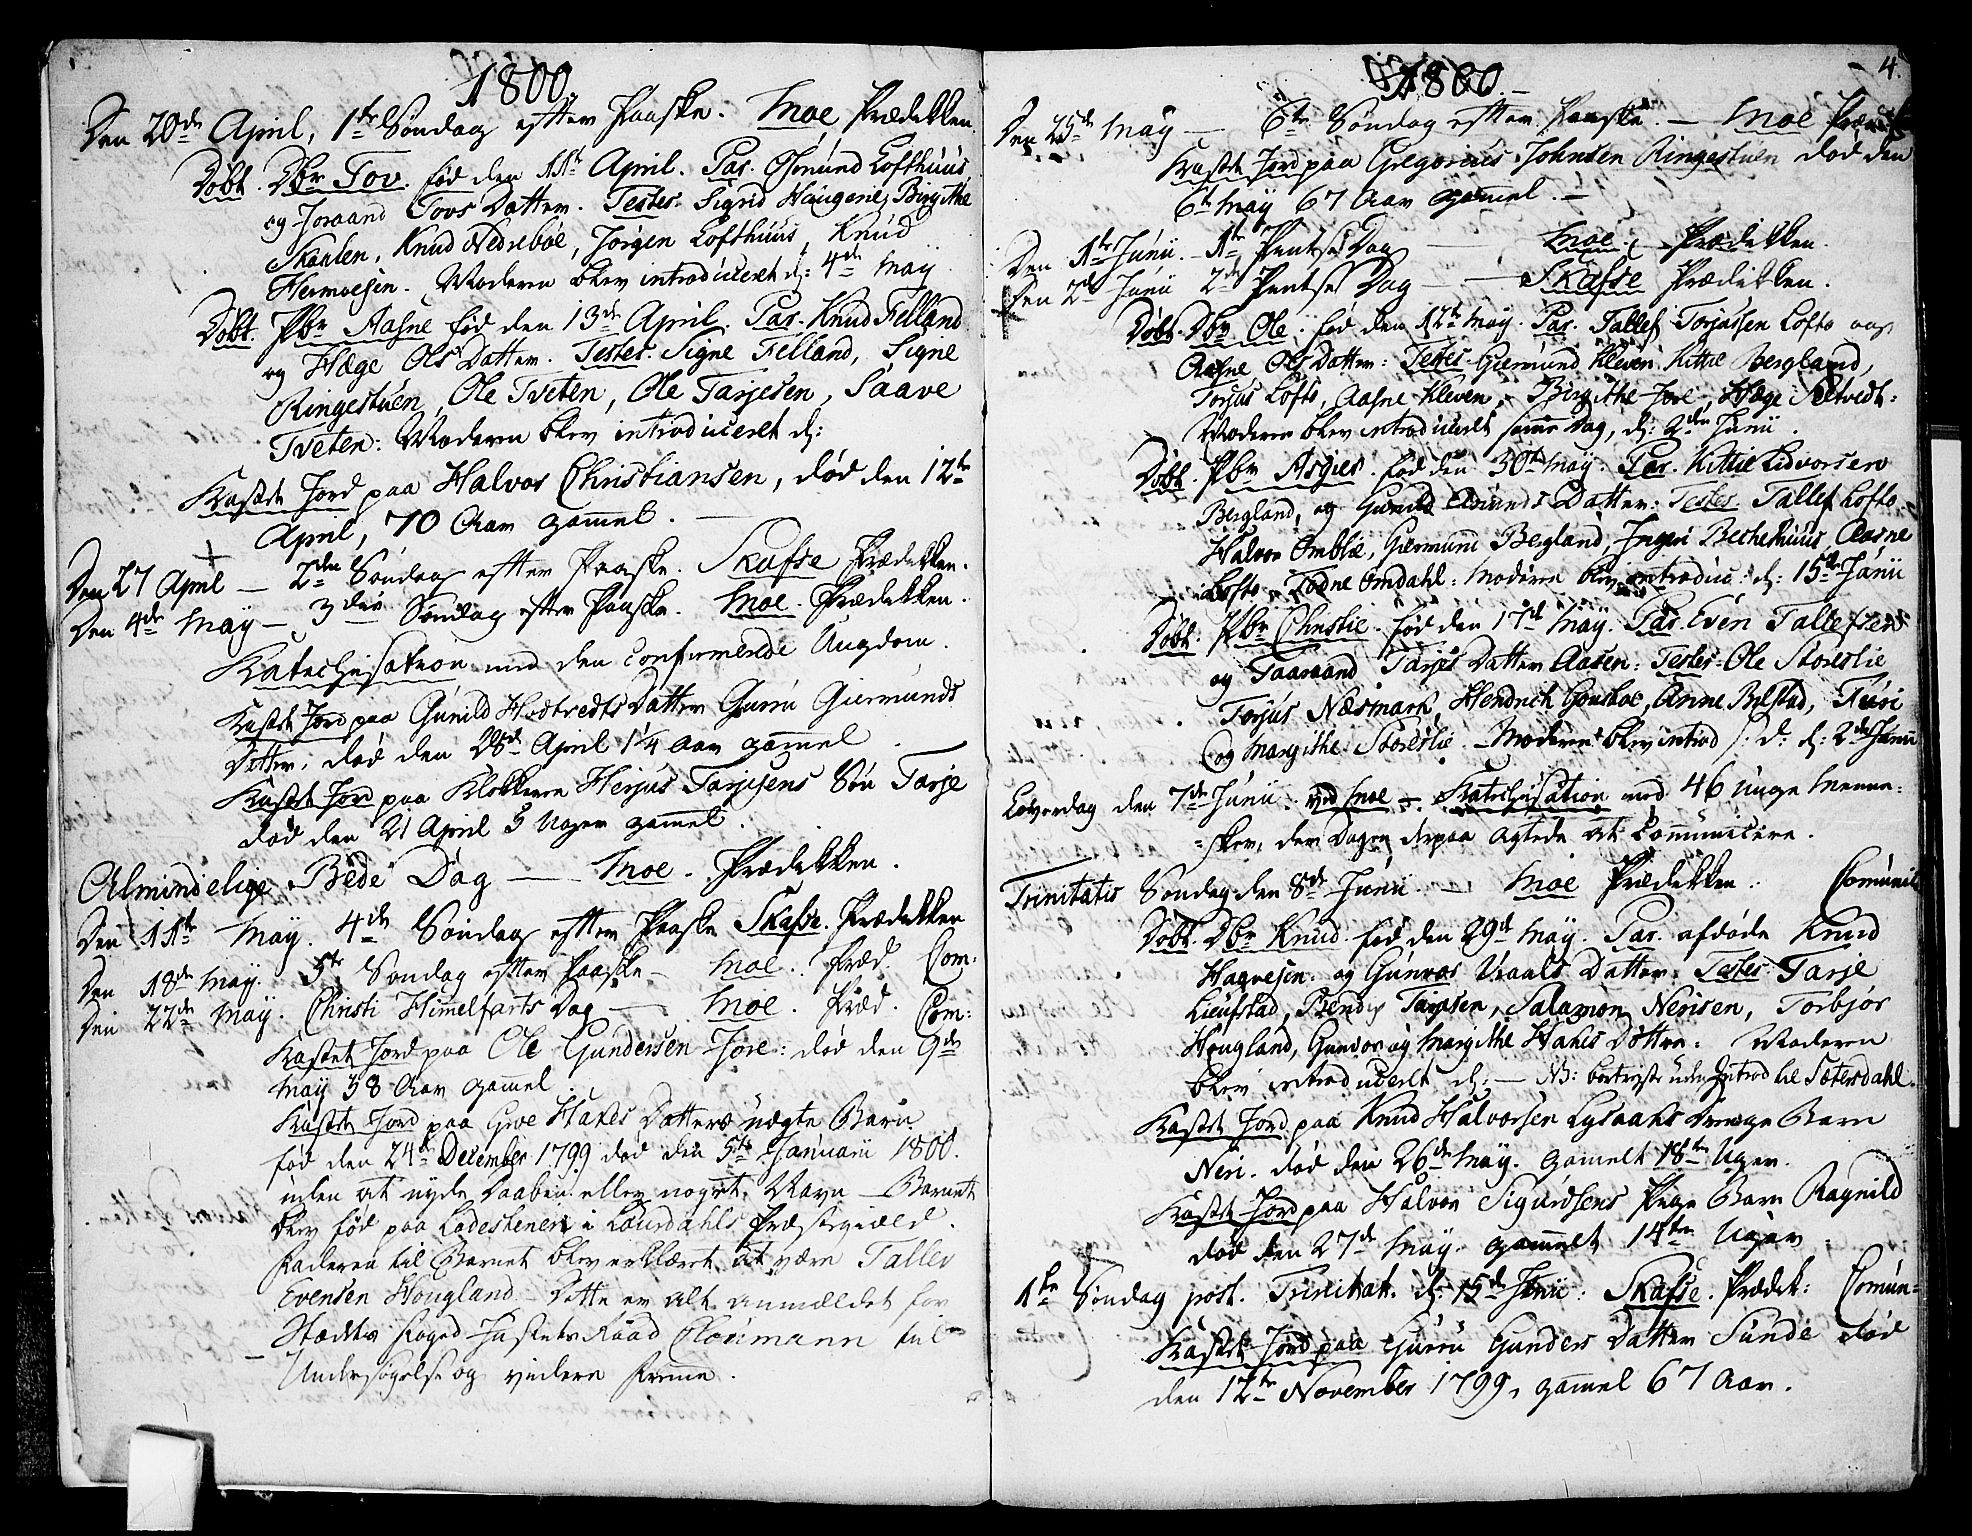 1800.
Den 20de April, 1te Søndag efter Paaske. Moe Prædikken
Døbt. Dbr Tov. fød den 11te April. Par. Osmund Lofthuus,
og Joraand Tovs Datter. Testes. Sigrid Haugene, Birgithe
Skaalen, Knud Nedreboe, Jørgen Lofthuus, Knud
Hermoesen. Moderen blev introduceret d: 4de May.
Døbt. Pbr Aasne fød den 13de April. Par. Knud Felland
og Hæge Ols Datter. Testes. Signe Felland, Signe
Ringestuen, Ole Tveten, Ole Tarjesen, Saave
Tveten: Moderen blev introduceret d:
Kastet Jord paa Halvor Christiansen, død den 12te
April, 70 Aar gammel.
Den 27 April — 2den Søndag efter Paaske. Skafse Prædikken.
Den 4de May — 3die Søndag efter Paaske. Moe. Prædikken.
Katechisation med den confirmerede Ungdom.
Kastet Jord paa Gunild Hodtvedts Datter Gurru Giermunds
Datter, død den 25de April 1¼ Aar gammel
Kastet Jord paa Klokkeren Herjus Tarjesens Søn Tarje
død den 21 April 3 Uger gammel.
Almindelige Bede Dag — Moe. Prædikken.
Den 11te May. 4de Søndag efter Paaske Skafse. Prædikken
Den 18de May. 5te Søndag efter Paaske — Moe. Præd. Com:
Den 22de May. Christi Himelfarts Dag — Moe. Præd. Com:
Kastet Jord paa Ole Gundersen Jore: død den 9de
May 38 Aar gammel.
Kastet Jord paa Groe Hakes Datters uægte Barn
fød den 24de December 1799 død den 5te Januarii 1800.
uden at nyde Daaben eller noget Navn — Barnet
blev fød paa Ladestenen i Laurdahls Præstegield.
Faderen til Barnet blev erklæret at være Tallev
Evensen Hougland — Dette er alt anmældet for
Stædets Foged Justets Raad Cloumann til
Undersøgelse og videre Fremme.
1800. 4.
Den 25de May — 6te Søndag efter Paaske. — Moe Præd
Kastet Jord paa Gregorius Johnsen Ringestuen død den
6te May 67 Aar gammel. —
Den 1te Junii. — 1te Pentse Dag — Moe. Prædikken.
Den 2de Junii 2de Pentse Dag — Skafse Prædikken.
Døbt. Dbr Ole. fød den 12te May. Par. Tallef Torjussen Lofto og
Aasne Ols Datter: Testes. Giermund Kleven Kittil Bergland,
Torjus Lofto, Aasne Kleven, Birgithe Jore, Hæge
Moderen blev introduceret samme Dag, d: 2den Junii.
Døbt. Pbr Asgier. fød den 30te May. Par. Kittil Lidvorsen
Bergland, og Gunild Asmunds Datter: Testes. Tallef Lofto,
Halvor Omblie, Giermund Bergland, Ingeri Aasne
Lofto, Omdahl: Moderen blev introduc: d: 15de Junii
Døbt. Pbr Christie. fød den 17de May. Par. Even Tallefsen
og Taaraand Tarjes Datter Aasen: Testes. Ole Storeslie
Torjus Næsmark, Hendrick Anne Bilstad, Turi
og Margithe Storeslie. — Moderen blev introd d: 2den Junii
Løverdag den 7de Junii. ved Moe — Katechisation med 46 unge Menne-
sker, der Dagen derpaa agtede at communicere.
Trinitatis Søndag den 8de Junii — Moe Prædikken. Comunic
Døbt. Dbr Knud. fød den 29de May. Par. afdøde Knud
Haavesen. og Gunvor Vraals Datter. Testes. Tarje
Lieufstad, Bendix Tarjesen, Salamon Nerisen, Torbjør
Hougland, Gunvor og Margithe Hakes Døttre. Moderen
blev introduceret d: — NB: bortreyste uden Introd til Sætersdahl.
Kastet Jord paa Knud Halvorsen Lysaaks Drenge Barn
Neri. død den 26de May. gamelt 18ten Uger.
Kastet Jord paa Halvor Sigurdsens Pige Barn Ragnild
død den 27de May. gammelt 14ten Uger.
1te Søndag post. Trinitat. d: 15de Junii: Skafse. Prædik: Comun-
Kastet Jord paa Gurru Gunders Datter Sunde død
den 12te November 1799, gammel 67 Aar.